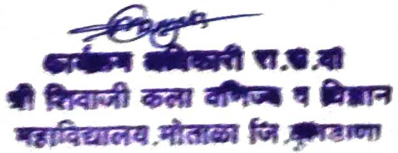 कार्यक्रम अधिकारी रा.स.यो
श्री शिवाजी कला वणिज्य व विज्ञान
महाविद्यालय, मोताळा जि. बुलडाणा